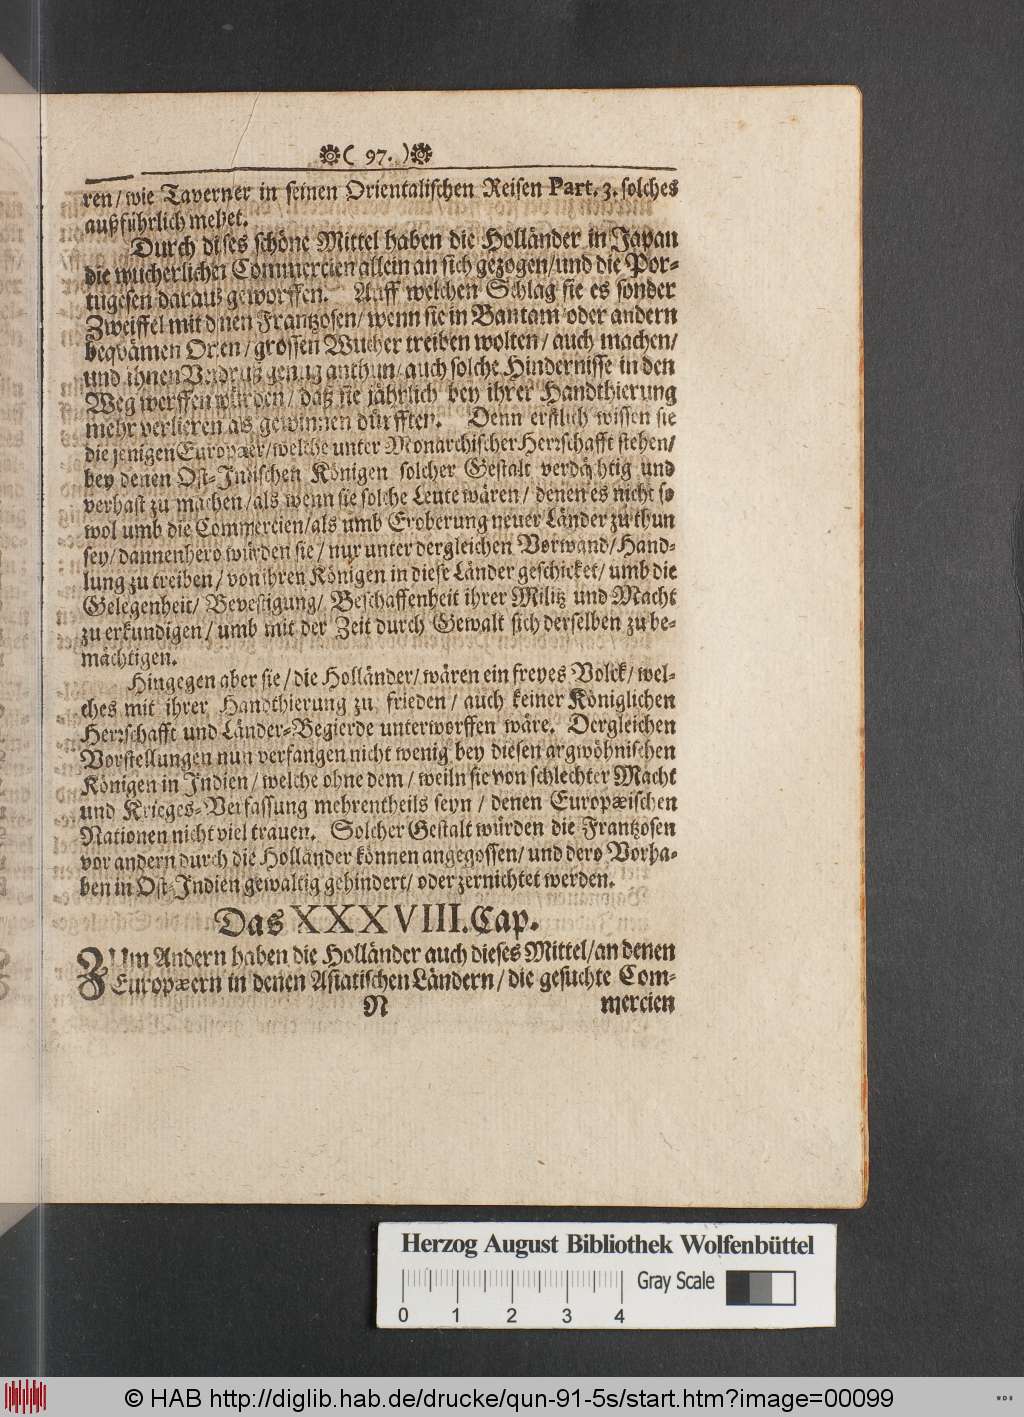 ( 97. )
ren/ wie Taverner in seinen Orientalischen Reisen Part. 3. solches
außführlich meldet.
Durch dises schöne Mittel haben die Holländer in Japan
die wucherlichen Commercien allein an sich gezogen/ und die Por-
tugesen darauß geworffen. Auff welchen Schlag sie es sonder
Zweiffel mit denen Frantzosen/ wenn sie in Bantam oder andern
beqvämen Orten/ grossen Wucher treiben wolten/ auch machen/
und ihnen Verdruß genug anthun/ auch solche Hindernisse in den
Weg werffen würden/ daß sie jährlich bey ihrer Handthierung
mehr verlieren als gewinnen dürfften. Denn erstlich wissen sie
die jenigen Europæer/ welche unter Monarchischer Herrschafft stehen/
bey denen Ost-Indischen Königen solcher Gestalt verdächtig und
verhast zu machen/ als wenn sie solche Leute wären/ denen es nicht so
wol umb die Commercien/ als umb Eroberung neuer Länder zu thun
sey/ dannenhero würden sie/ nur unter dergleichen Vorwand/ Hand-
lung zu treiben/ von ihren Königen in diese Länder geschicket/ umb die
Gelegenheit/ Bevestigung/ Beschaffenheit ihrer Militz und Macht
zu erkundigen/ umb mit der Zeit durch Gewalt sich derselben zu be-
mächtigen.
Hingegen aber sie/ die Holländer/ wären ein freyes Volck/ wel-
ches mit ihrer Handthierung zu frieden/ auch keiner Königlichen
Herrschafft und Länder-Begierde unterworffen wäre. Dergleichen
Vorstellungen nun verfangen nicht wenig bey diesen argwöhnischen
Königen in Indien/ welche ohne dem/ weiln sie von schlechter Macht
und Krieges-Verfassung mehrentheils seyn/ denen Europæischen
Nationen nicht viel trauen. Solcher Gestalt würden die Frantzosen
vor andern durch die Holländer können angegossen/ und dero Vorha-
ben in Ost-Indien gewaltig gehindert/ oder zernichtet werden.
Das XXXVIII. Cap.
ZUm Andern haben die Holländer auch dieses Mittel/ an denen
Europæern in denen Asiatischen Ländern/ die gesuchte Com-
N mercien
Herzog August Bibliothek Wolfenbüttel
Gray Scale
0 1 2 3 4
© HAB http://diglib.hab.de/drucke/qun-91-5s/start.htm?image=00099